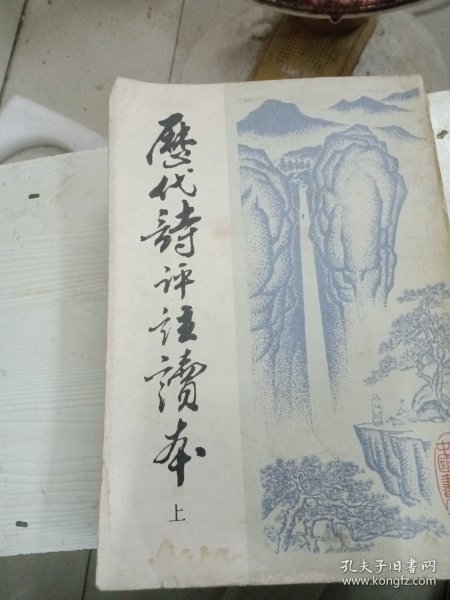 歷代詩评註讀本
上
中國書
孔夫子旧书网
www.kongfz.com